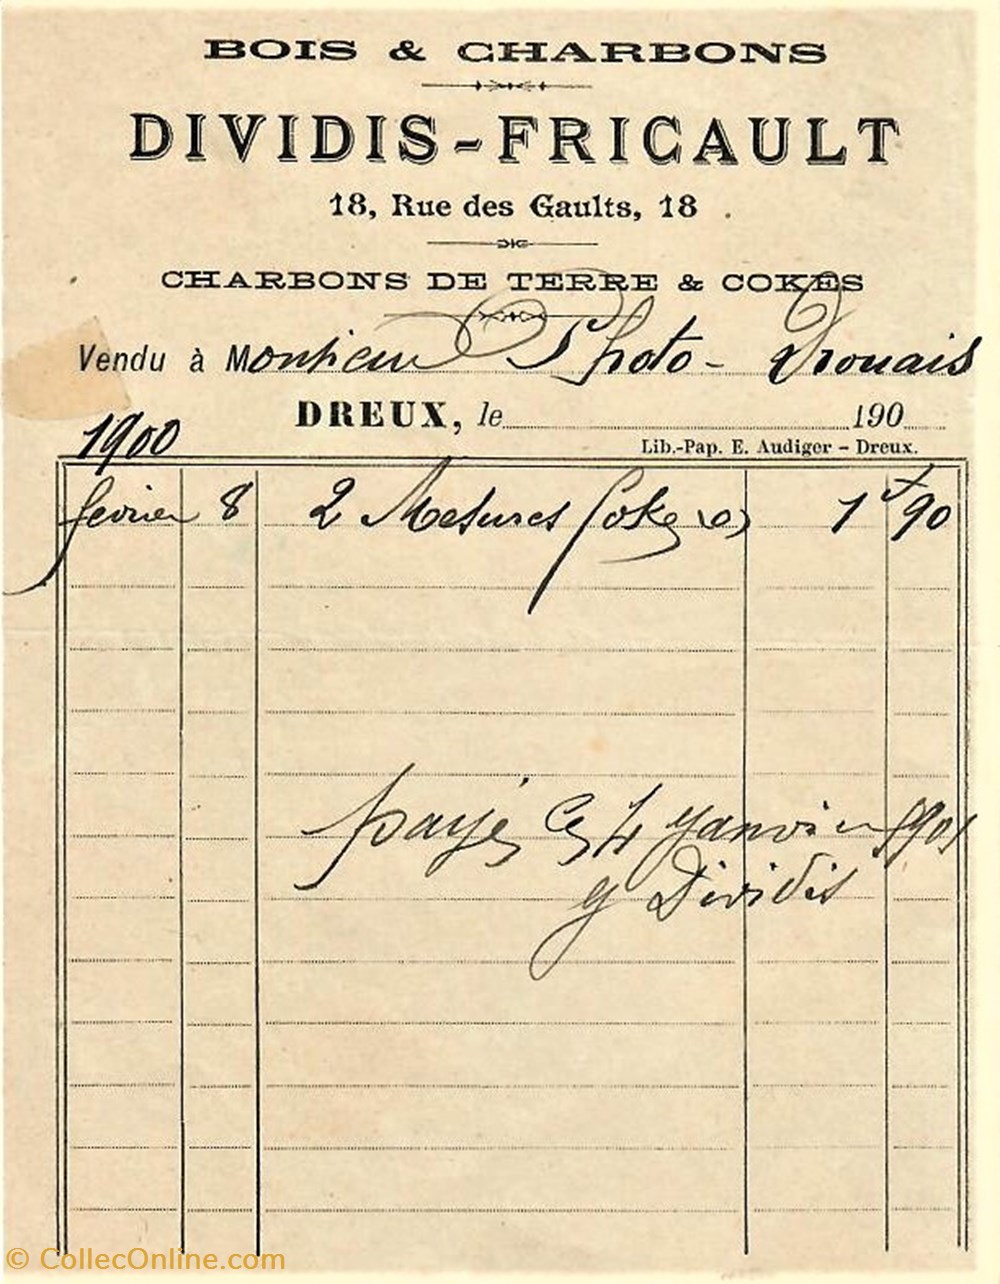 BOIS & CHARBONS
DIVIDIS-FRICAULT
18, Rue des Gaults, 18
CHARBONS DE TERRE & COKES
Vendu à Monsieur Photo-Drouais
DREUX, le 190
1900
Lib.-Pap. E. Audiger – Dreux.
février 8 2 Mesures Coke 1 f 90
payé Ce 4 Janvier 1901
Dividis
© CollecOnline.com